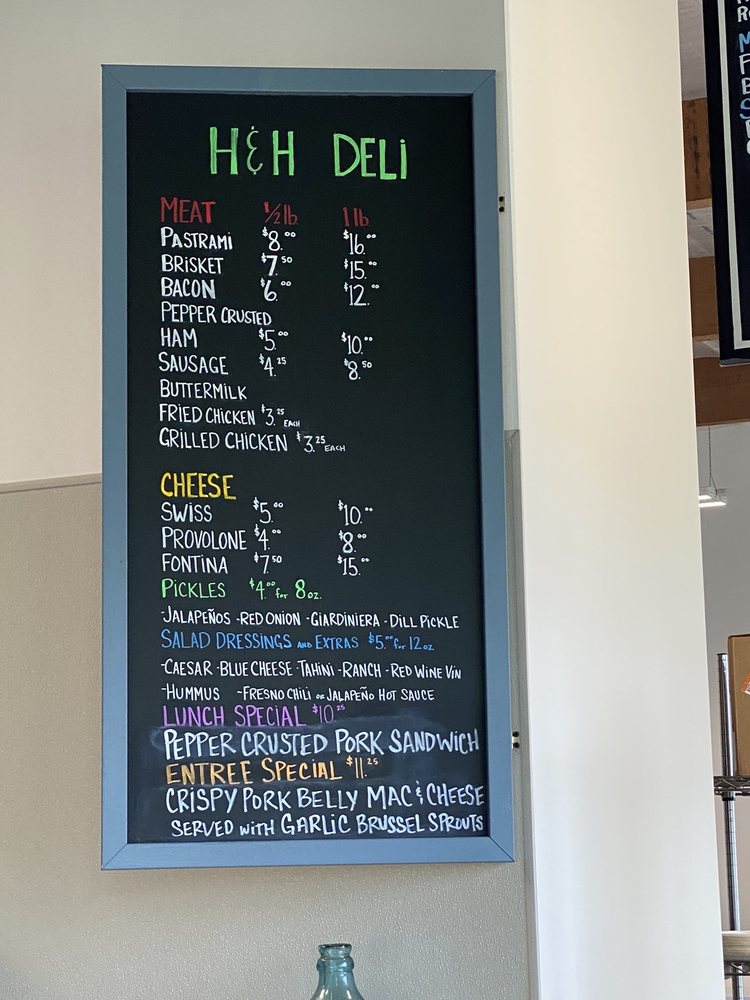 H & H DELI
MEAT 1/2 lb. 1 lb
PASTRAMI $8.00 $16.00
BRISKET $7.50 $15.00
BACON $6.00 $12.00
PEPPER CRUSTED
HAM $5.00 $10.00
SAUSAGE $4.25 $8.50
BUTTERMILK
FRIED CHICKEN $3.25 EACH
GRILLED CHICKEN $3.25 EACH
CHEESE
SWISS $5.00 $10.00
PROVOLONE $4.00 $8.00
FONTINA $7.50 $15.00
PICKLES $4.00 for 8 oz.
-JALAPEÑOS -RED ONION -GIARDINIERA -DILL PICKLE
SALAD DRESSINGS AND EXTRAS $5.00 for 12 oz
-CAESAR -BLUE CHEESE -TAHINI -RANCH -RED WINE VIN
-HUMMUS -FRESNO CHILI OR JALAPEÑO HOT SAUCE
LUNCH SPECIAL $10.25
PEPPER CRUSTED PORK SANDWICH
ENTREE SPECIAL $11.25
CRISPY PORK BELLY MAC & CHEESE
SERVED WITH GARLIC BRUSSEL SPROUTS